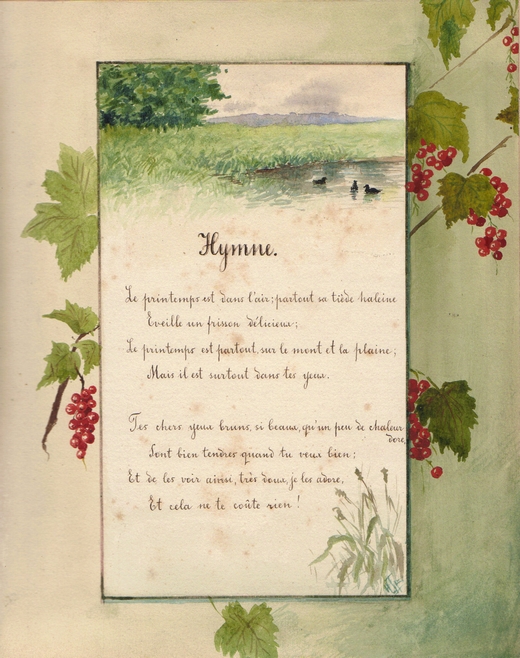 Hymne.
Le printemps est dans l'air; partout sa tiède haleine
Eveille un frisson délicieux;
Le printemps est partout, sur le mont et la plaine;
Mais il est surtout dans tes yeux.
Tes chers yeux bruns, si beaux, qu'un peu de chaleur
dore,
Sont bien tendres quand tu veux bien;
Et de les voir ainsi, très doux, je les adore,
Et cela ne te coûte rien!